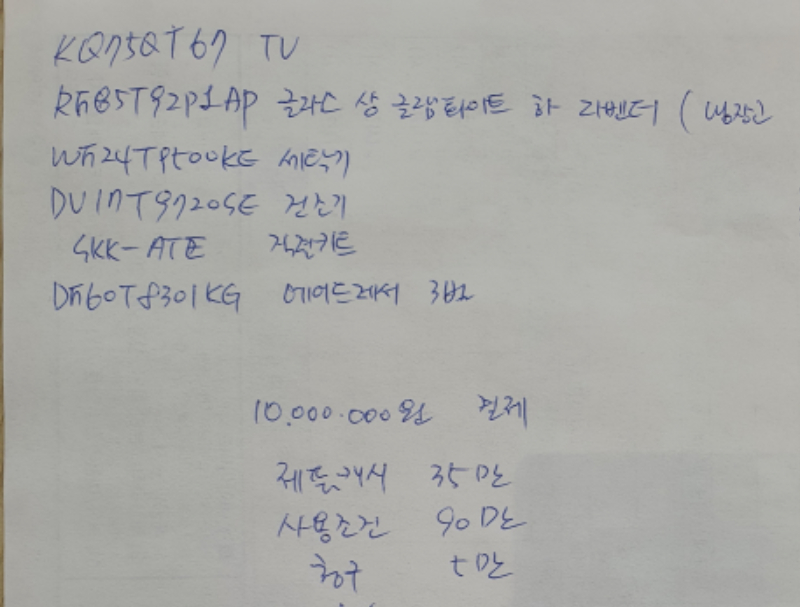 KQ75QT67 TV
RF85T92P1AP 글라스 상 글램화이트 하 라벤더 (냉장고
WF24T9500KE 세탁기
DV17T9720SE 건조기
SKK-ATE 직렬키트
DF60T8301KG 에어드레서 3벌
10,000,000원 결제
제휴카사 35만
사용조건 90만
청구 5만